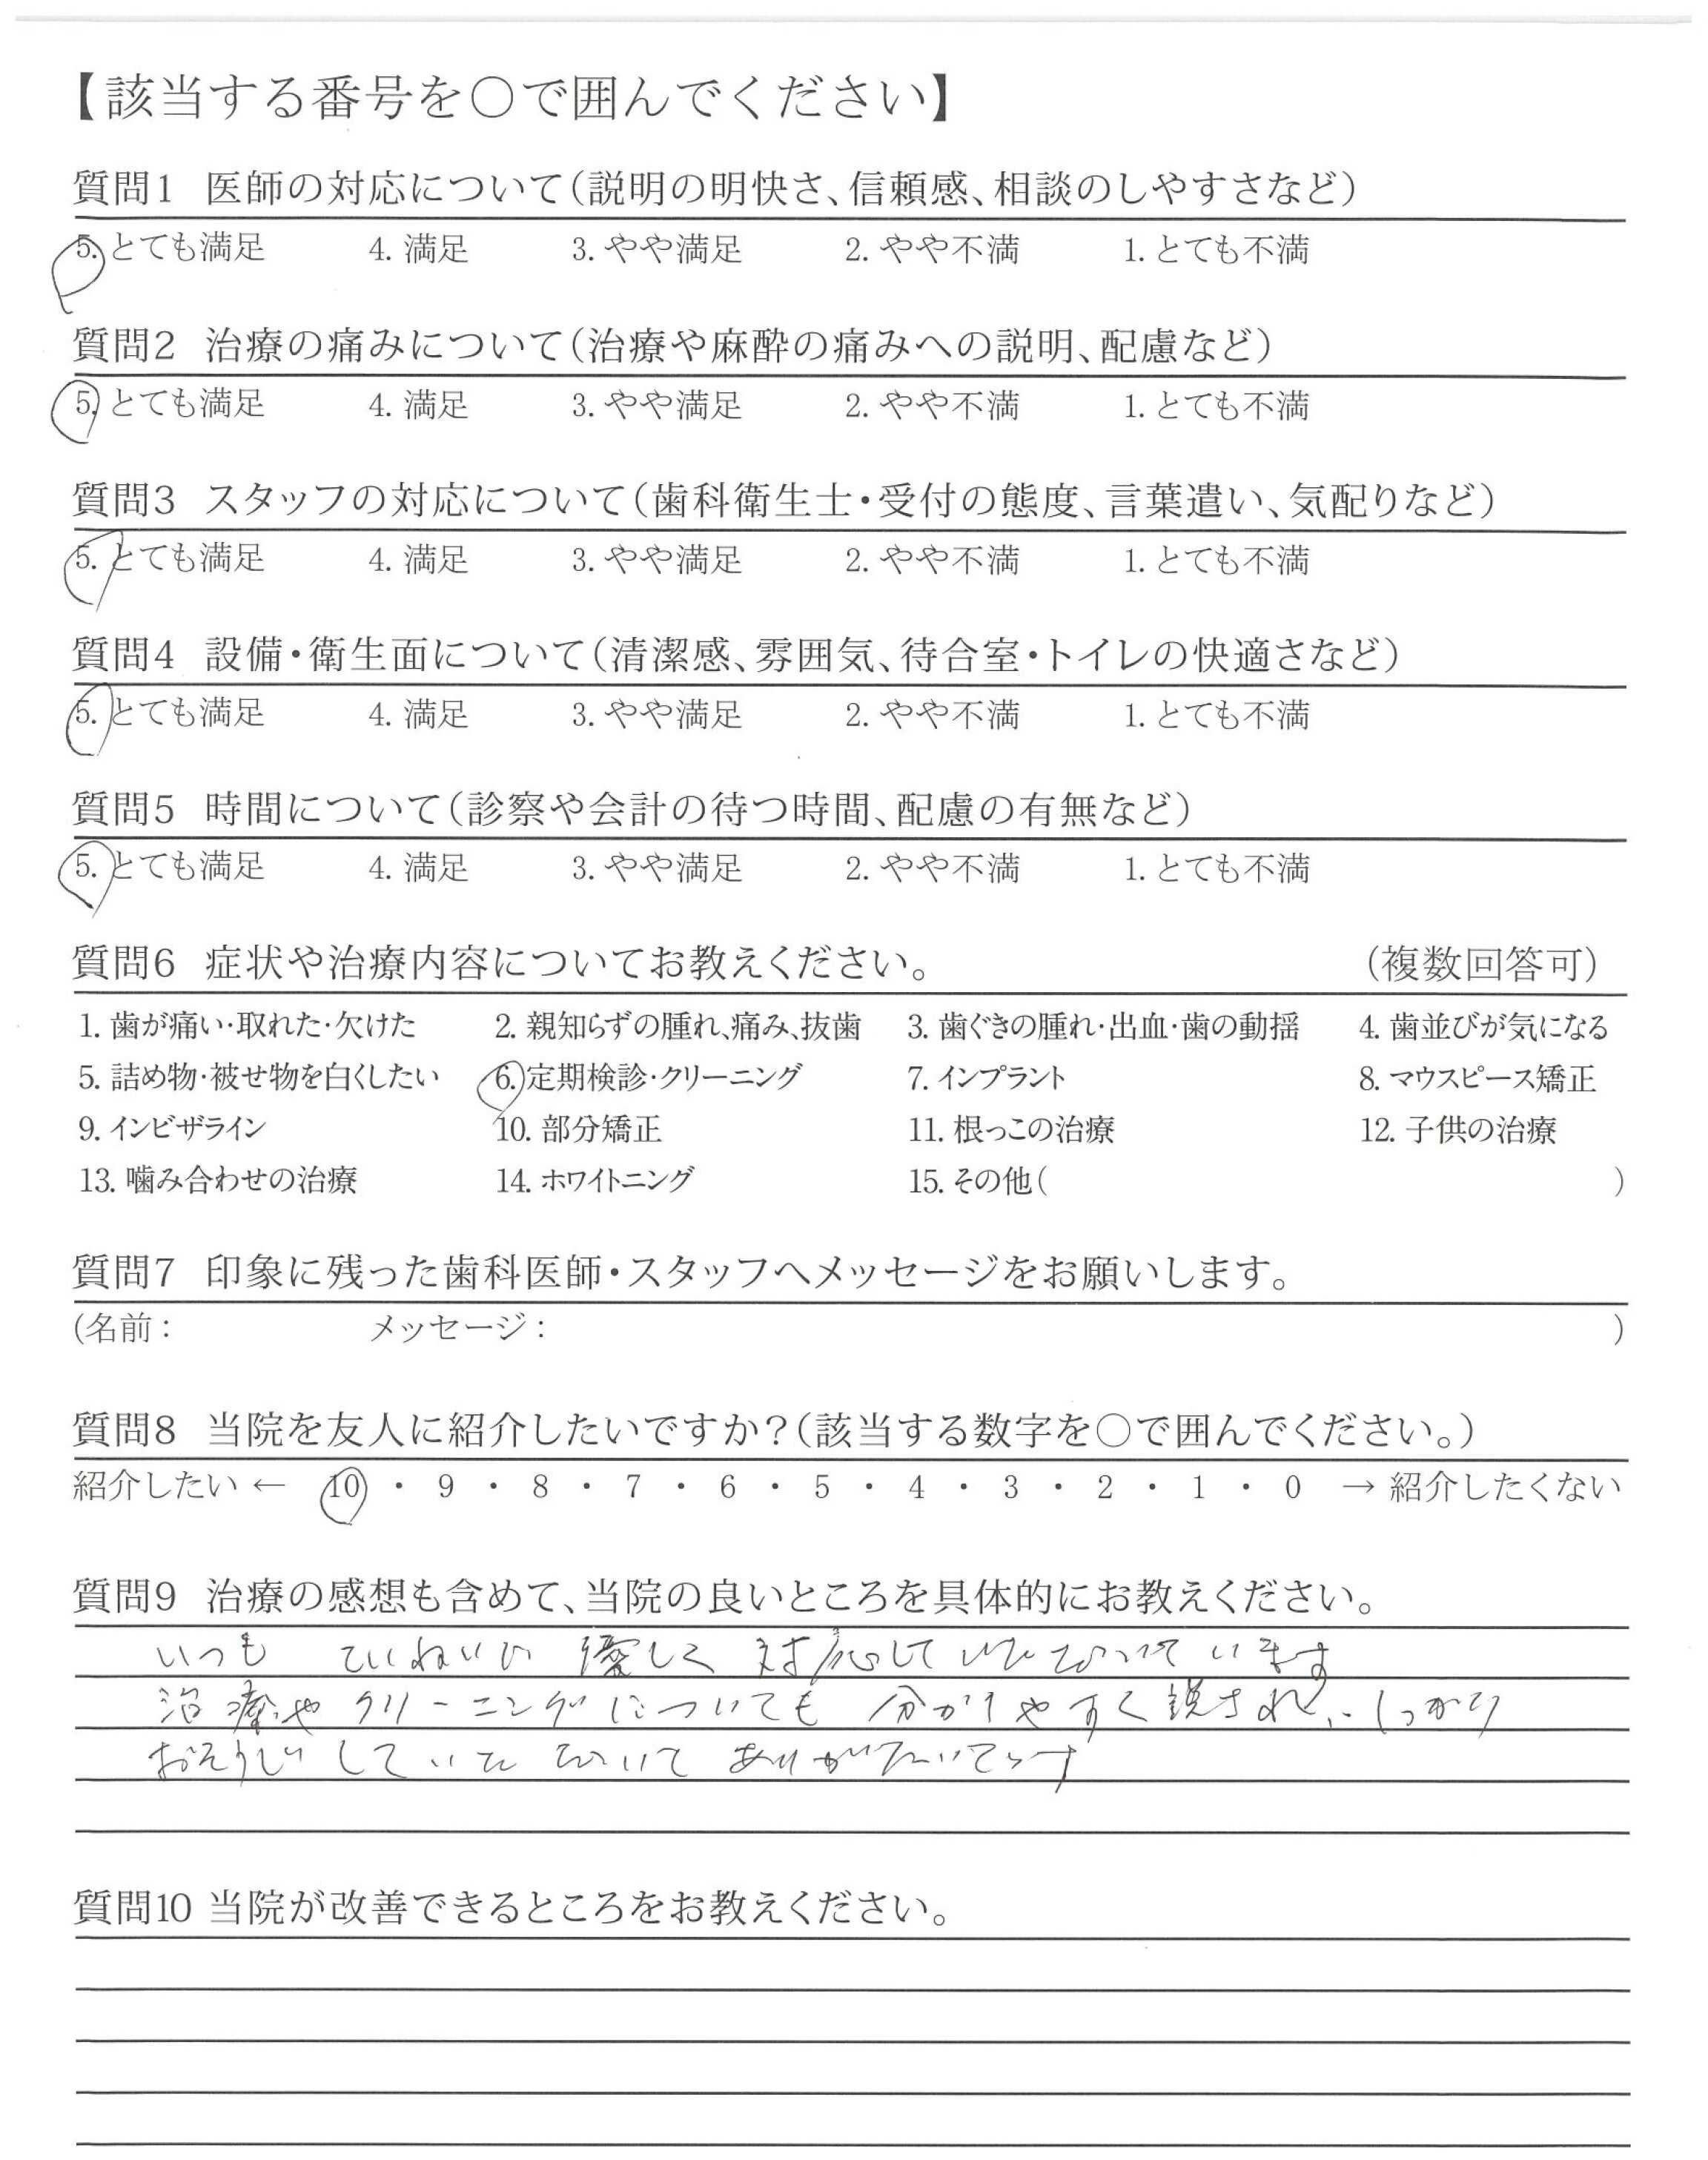 【該当する番号を○で囲んでください】
質問1 医師の対応について(説明の明快さ、信頼感、相談のしやすさなど)
5. とても満足 4. 満足 3. やや満足 2. やや不満 1. とても不満
質問2 治療の痛みについて(治療や麻酔の痛みへの説明、配慮など)
5. とても満足 4. 満足 3. やや満足 2. やや不満 1. とても不満
質問3 スタッフの対応について(歯科衛生士・受付の態度、言葉遣い、気配りなど)
5. とても満足 4. 満足 3. やや満足 2. やや不満 1. とても不満
質問4 設備・衛生面について(清潔感、雰囲気、待合室・トイレの快適さなど)
5. とても満足 4. 満足 3. やや満足 2. やや不満 1. とても不満
質問5 時間について(診察や会計の待つ時間、配慮の有無など)
5. とても満足 4. 満足 3. やや満足 2. やや不満 1. とても不満
質問6 症状や治療内容についてお教えください。 (複数回答可)
1. 歯が痛い・取れた・欠けた 2. 親知らずの腫れ、痛み、抜歯 3. 歯ぐきの腫れ・出血・歯の動揺 4. 歯並びが気になる
5. 詰め物・被せ物を白くしたい 6. 定期検診・クリーニング 7. インプラント 8. マウスピース矯正
9. インビザライン 10. 部分矯正 11. 根っこの治療 12. 子供の治療
13. 噛み合わせの治療 14. ホワイトニング 15. その他( )
質問7 印象に残った歯科医師・スタッフへメッセージをお願いします。
(名前: メッセージ: )
質問8 当院を友人に紹介したいですか?(該当する数字を○で囲んでください。)
紹介したい ← 10 ・ 9 ・ 8 ・ 7 ・ 6 ・ 5 ・ 4 ・ 3 ・ 2 ・ 1 ・ 0 → 紹介したくない
質問9 治療の感想も含めて、当院の良いところを具体的にお教えください。
いつも ていねいに 優しく 対応して いただいて います
治療や クリーニングについても 分かりやすく しっかり
おそうじ して いただいて ありがたいです
質問10 当院が改善できるところをお教えください。